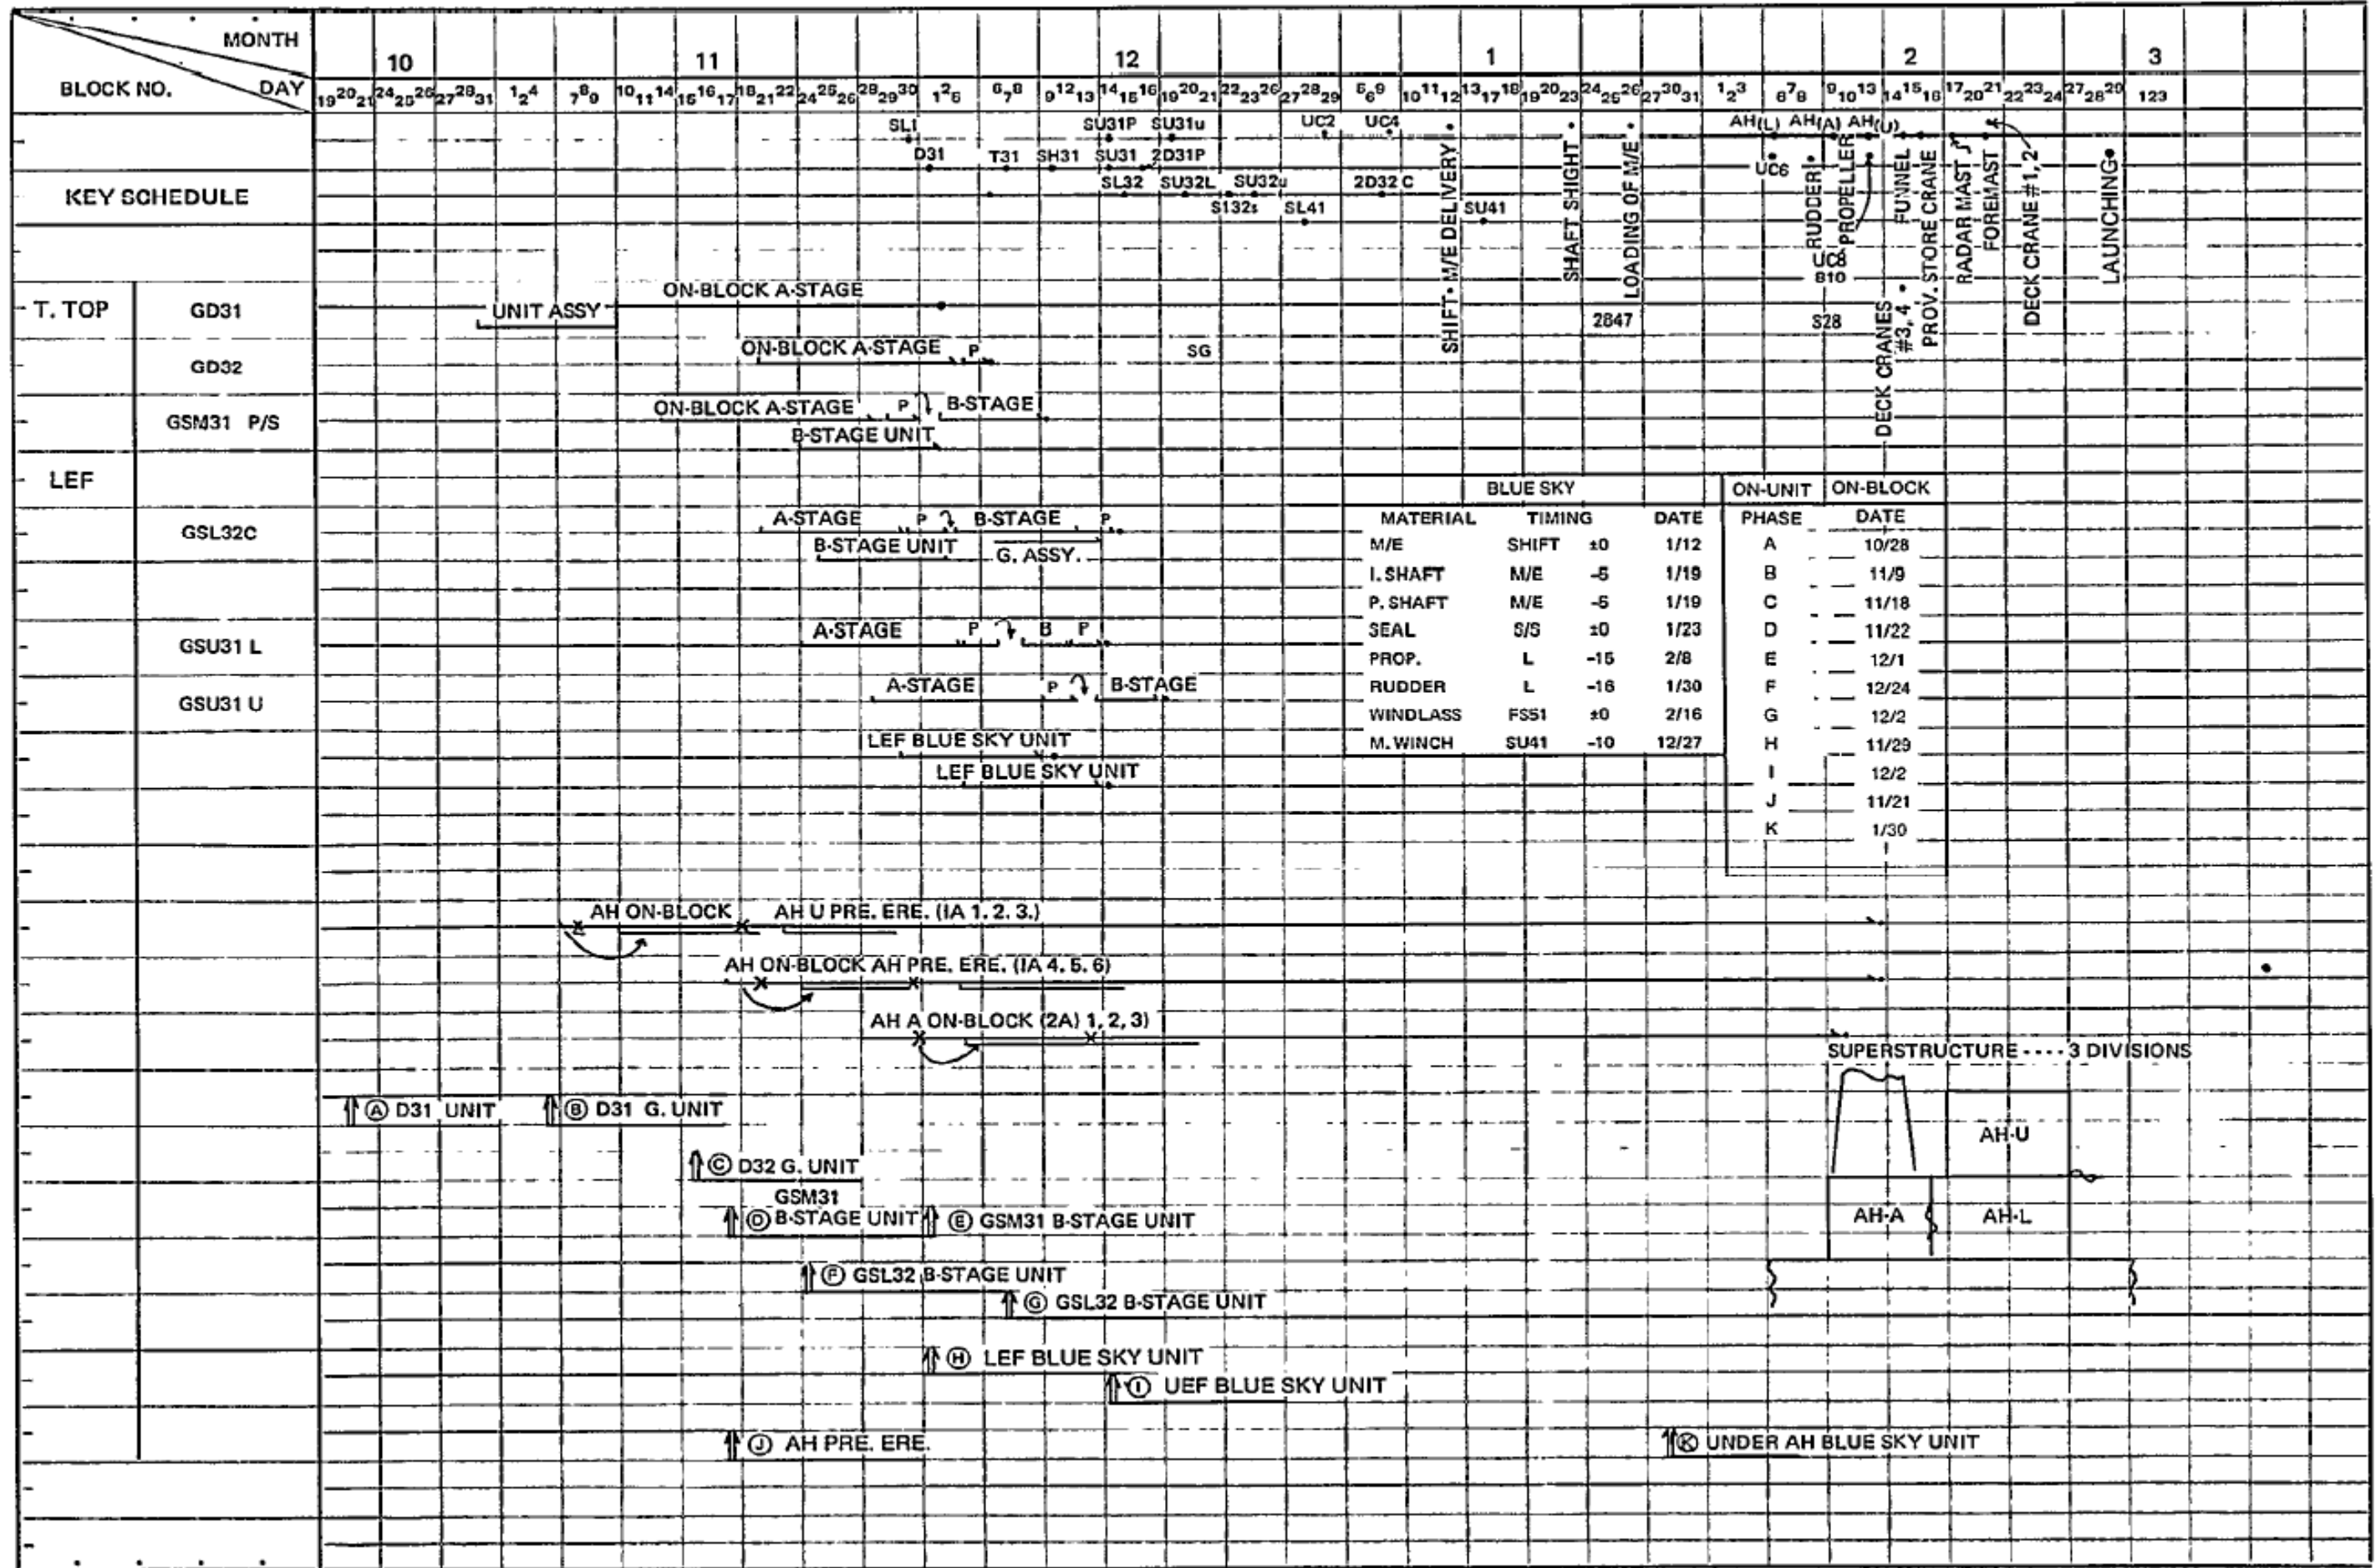 MONTH
BLOCK NO.
DAY
10 11 12 1 2 3
19 20 21 24 25 26 27 28 31 1 2 4 7 8 9 10 11 14 15 16 17 18 21 22 24 25 26 28 29 30 1 2 5 6 7 8 9 12 13 14 15 16 19 20 21 22 23 26 27 28 29 5 6 9 10 11 12 13 17 18 19 20 23 24 25 26 27 30 31 1 2 3 6 7 8 9 10 13 14 15 16 17 20 21 22 23 24 27 28 29 123
KEY SCHEDULE
SL1 SU31P SU31u UC2 UC4 AH(L) AH(A) AH(U)
D31 T31 SH31 SU31 2D31P UC6
SL32 SU32L SU32u 2D32 C
S132s SL41 SU41
SHIFT · M/E DELIVERY
SHAFT SHIGHT
LOADING OF M/E
RUDDER
UC8
810
PROPELLER
DECK CRANES #3, 4
FUNNEL
PROV. STORE CRANE
RADAR MAST
FOREMAST
DECK CRANE #1, 2
LAUNCHING
T. TOP
GD31
UNIT ASSY
ON-BLOCK A-STAGE
2847
S28
GD32
ON-BLOCK A-STAGE P
SG
GSM31 P/S
ON-BLOCK A-STAGE P B-STAGE
B-STAGE UNIT
LEF
GSL32C
A-STAGE P B-STAGE P
B-STAGE UNIT G. ASSY.
GSU31 L
A-STAGE P B P
GSU31 U
A-STAGE P B-STAGE
LEF BLUE SKY UNIT
LEF BLUE SKY UNIT
BLUE SKY ON-UNIT ON-BLOCK
MATERIAL TIMING DATE PHASE DATE
M/E SHIFT ±0 1/12 A 10/28
I. SHAFT M/E -5 1/19 B 11/9
P. SHAFT M/E -5 1/19 C 11/18
SEAL S/S ±0 1/23 D 11/22
PROP. L -15 2/8 E 12/1
RUDDER L -16 1/30 F 12/24
WINDLASS FS51 ±0 2/16 G 12/2
M. WINCH SU41 -10 12/27 H 11/29
I 12/2
J 11/21
K 1/30
AH ON-BLOCK AH U PRE. ERE. (IA 1. 2. 3.)
AH ON-BLOCK AH PRE. ERE. (IA 4. 5. 6)
AH A ON-BLOCK (2A) 1, 2, 3)
SUPERSTRUCTURE ···· 3 DIVISIONS
AH-U
AH-A AH-L
Ⓐ D31 UNIT Ⓑ D31 G. UNIT
Ⓒ D32 G. UNIT
GSM31
Ⓓ B-STAGE UNIT Ⓔ GSM31 B-STAGE UNIT
Ⓕ GSL32 B-STAGE UNIT
Ⓖ GSL32 B-STAGE UNIT
Ⓗ LEF BLUE SKY UNIT
Ⓘ UEF BLUE SKY UNIT
Ⓙ AH PRE. ERE. Ⓚ UNDER AH BLUE SKY UNIT